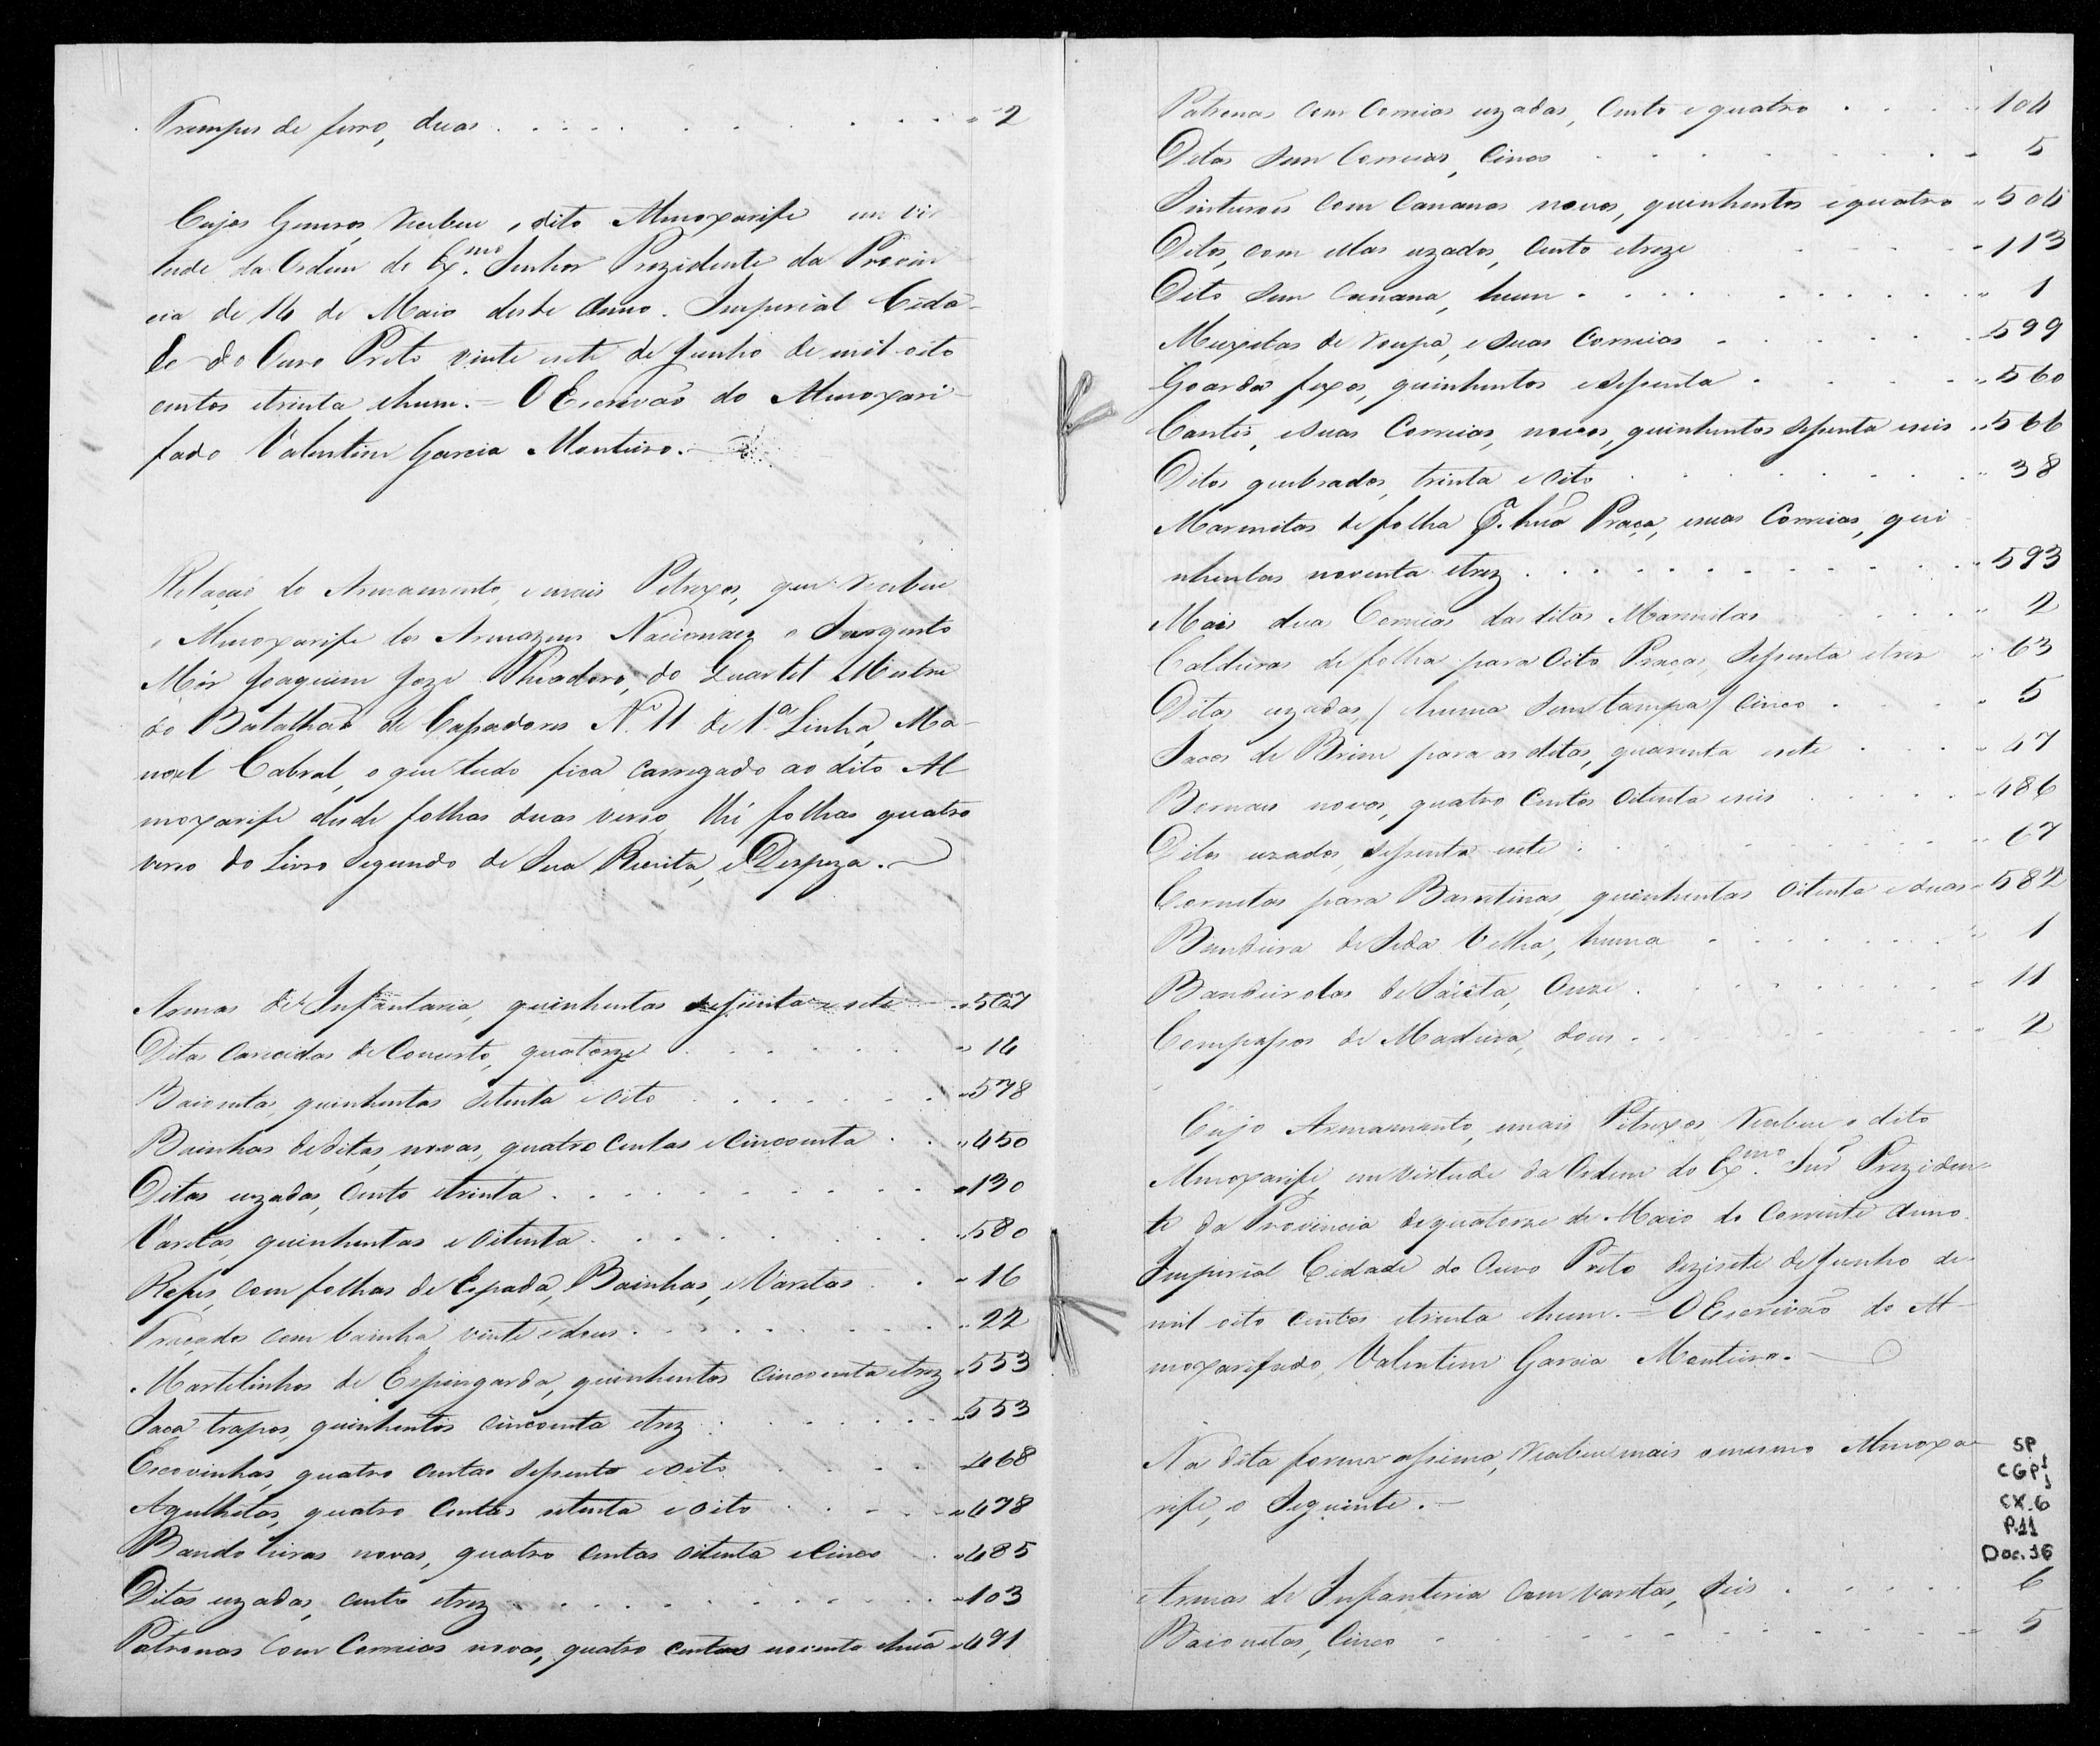 Trempes de ferro, duas . . . . . . . . . . . " 2
Cujos Generos recebeu o dito Almoxarife em vir
tude da Ordem do Exmo. Senhor Prezidente da Provin
cia de 14 de Maio deste Anno. Imperial Cida-
de do Ouro Preto vinte e sete de Junho de mil oito
centos e trinta e hum. = O Escrivaõ do Almoxari-
fado Valentim Garcia Monteiro.
Relaçaõ do Armamento, e mais Petrexos, que recebeu
o Almoxarife dos Armazens Nacionaes o Sargento
Mór Joaquim Joze Theadoro, do Quartel Mestre
do Batalhaõ de Cassadores N.º 11 de 1.ª Linha, Ma-
noel Cabral, o que tudo fica carregado ao dito Al-
moxarife desde folhas duas verso, thé folhas quatro
verso do Livro Segundo de Sua Receita, e Despeza.
Armas de Infantaria, quinhentas sessenta e sete " 567
Ditas carecidas de Concerto, quatorze . . . . . " 14
Baionetas, quinhentas setenta e oito . . . . . . " 578
Bainhas de ditas, novas, quatro centas e cincoenta . . " 450
Ditas uzadas, cento e trinta . . . . . . . . " 130
Varetas quinhentas e oitenta . . . . . . . " 580
Refes, com folhas de Espada, Bainhas, e Varetas . . " 16
Traçados com bainha vinte e dous . . . . . . " 22
Martelinhos de Espingarda, quinhentos cincoenta e trez " 553
Saca trapos, quinhentos cincoenta e trez . . . . . " 553
Escovinhas, quatro centas sessenta e oito . . . . " 468
Agulhetas, quatro centas setenta e oito . . . " 478
Bandoleiras novas, quatro centas oitenta e cinco . " 485
Ditas uzadas, cento e trez . . . . . . . . . " 103
Patronas com Correias novas, quatro centas noventa e huã " 491
Patronas com Correias uzadas, cento e quatro . . . . " 104
Ditas sem Correias, cinco . . . . . . . . " 5
Sinturoẽs com Cananas novos, quinhentos e quatro " 504
Ditos, com ellas uzados, cento e treze . . . " 113
Dito sem Canana, hum . . . . . . . . " 1
Muxilas de roupa, e suas Correias . . . . . " 599
Goarda fexos, quinhentos e sessenta . . . . " 560
Cantis, e suas Correias, novos, quinhentos sessenta e seis " 566
Ditos quebrados, trinta e oito . . . . . . " 38
Marmitas de folha p. huã Praça, e suas Correias, qui
nhentas noventa e trez . . . . . . . . . " 593
Mais duas Correias das ditas Marmitas . . . . " 2
Caldeiras de folha para oito Praças, sessenta e trez " 63
Ditas uzadas, / huma sem tampa / cinco . . . . " 5
Sacos de Brim para as ditas, quarenta e sete . . . " 47
Bornaes novos, quatro centos oitenta e seis . . . . " 486
Ditos uzados, sessenta e sete . . . . . . . " 67
Cornetas para Barretinas, quinhentas oitenta e duas " 582
Bandeira de Seda Velha, huma . . . . . . . " 1
Bandeirolas de Saieta, Onze . . . . . . . " 11
Compassos de Madeira, dous . . . . . . . " 2
Cujo Armamento, e mais Petrexos recebeu o dito
Almoxarife, em virtude da Ordem do Exmo. Snr. Preziden-
te da Provincia de quatorze de Maio do Corrente Anno.
Imperial Cidade do Ouro Preto dezisete de Junho de
mil oito centos e trinta e hum. = O Escrivaõ do Al-
moxarifado, Valentim Garcia Monteiro.
Na dita forma assima, recebeu mais o mesmo Almoxa-
rife, o Seguinte. -
SP
CGP¹
CX.6
P.11
Doc.36
Armas de Infanteria com varetas, seis . . . . . 6
Baionetas, cinco . . . . . . . . . . " 5